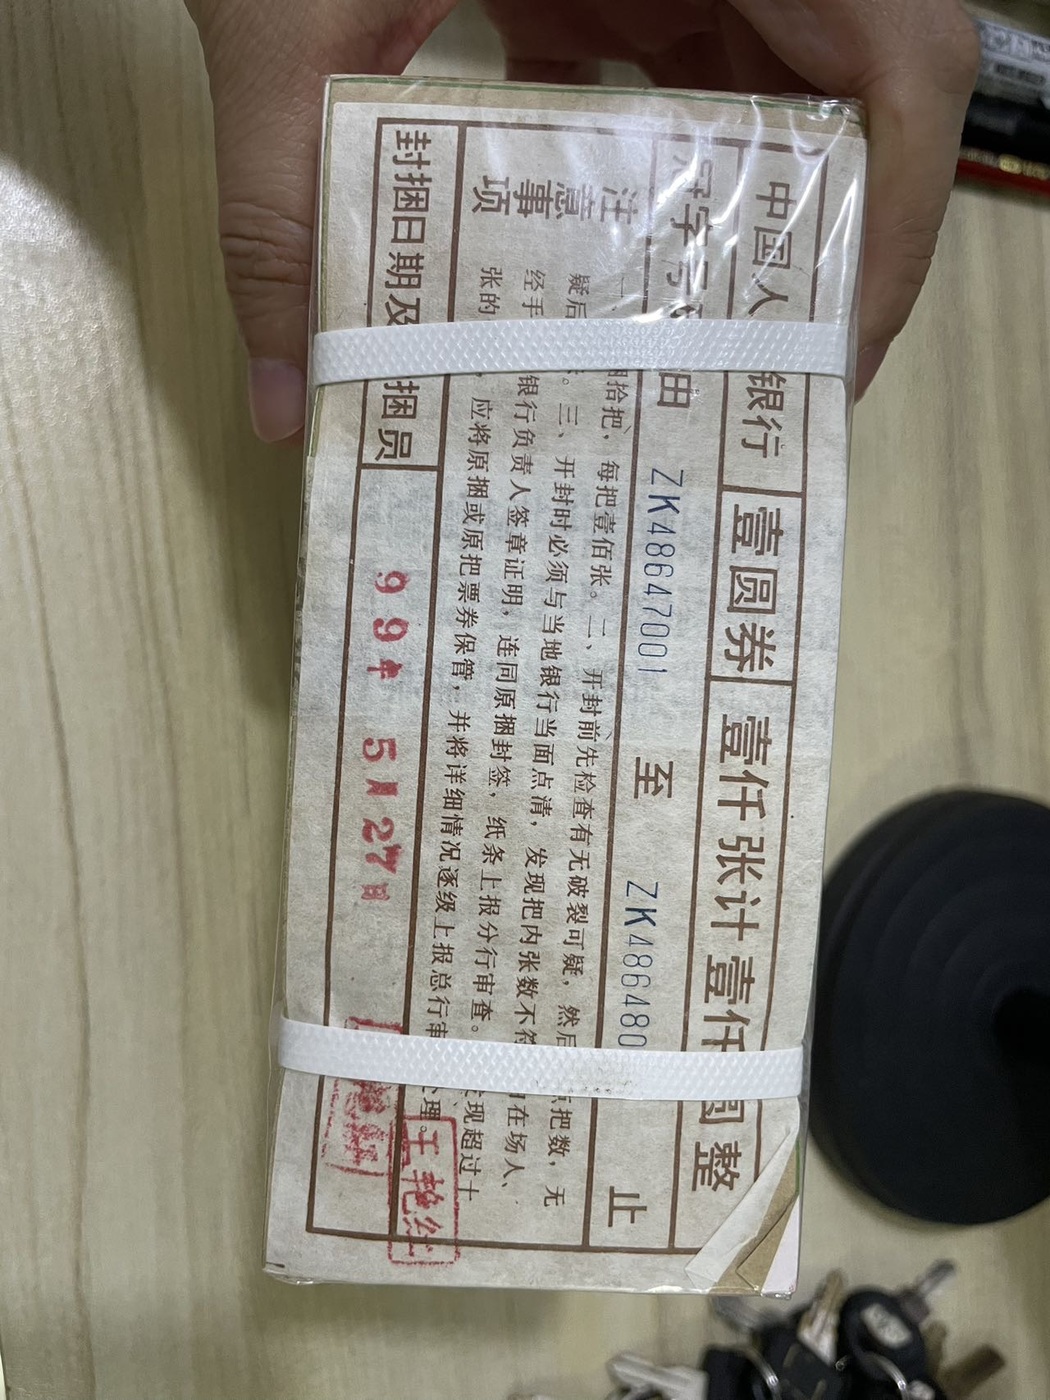 中国人 银行 壹圆券 壹仟张计壹仟圆整
冠字号 由 ZK48647001 至 ZK486480 止
注意事项
一、 捆拾把，每把壹佰张。二、开封前先检查有无破裂可疑，然后 点把数，无
疑后 。三、开封时必须与当地银行当面点清，发现把内张数不符 在场人、
经手 银行负责人签章证明，连同原捆封签，纸条上报分行审查。 发现超过十
张的 ，应将原捆或原把票券保管，并将详细情况逐级上报总行审 处理。
封捆日期及 捆员
99年 5月27日